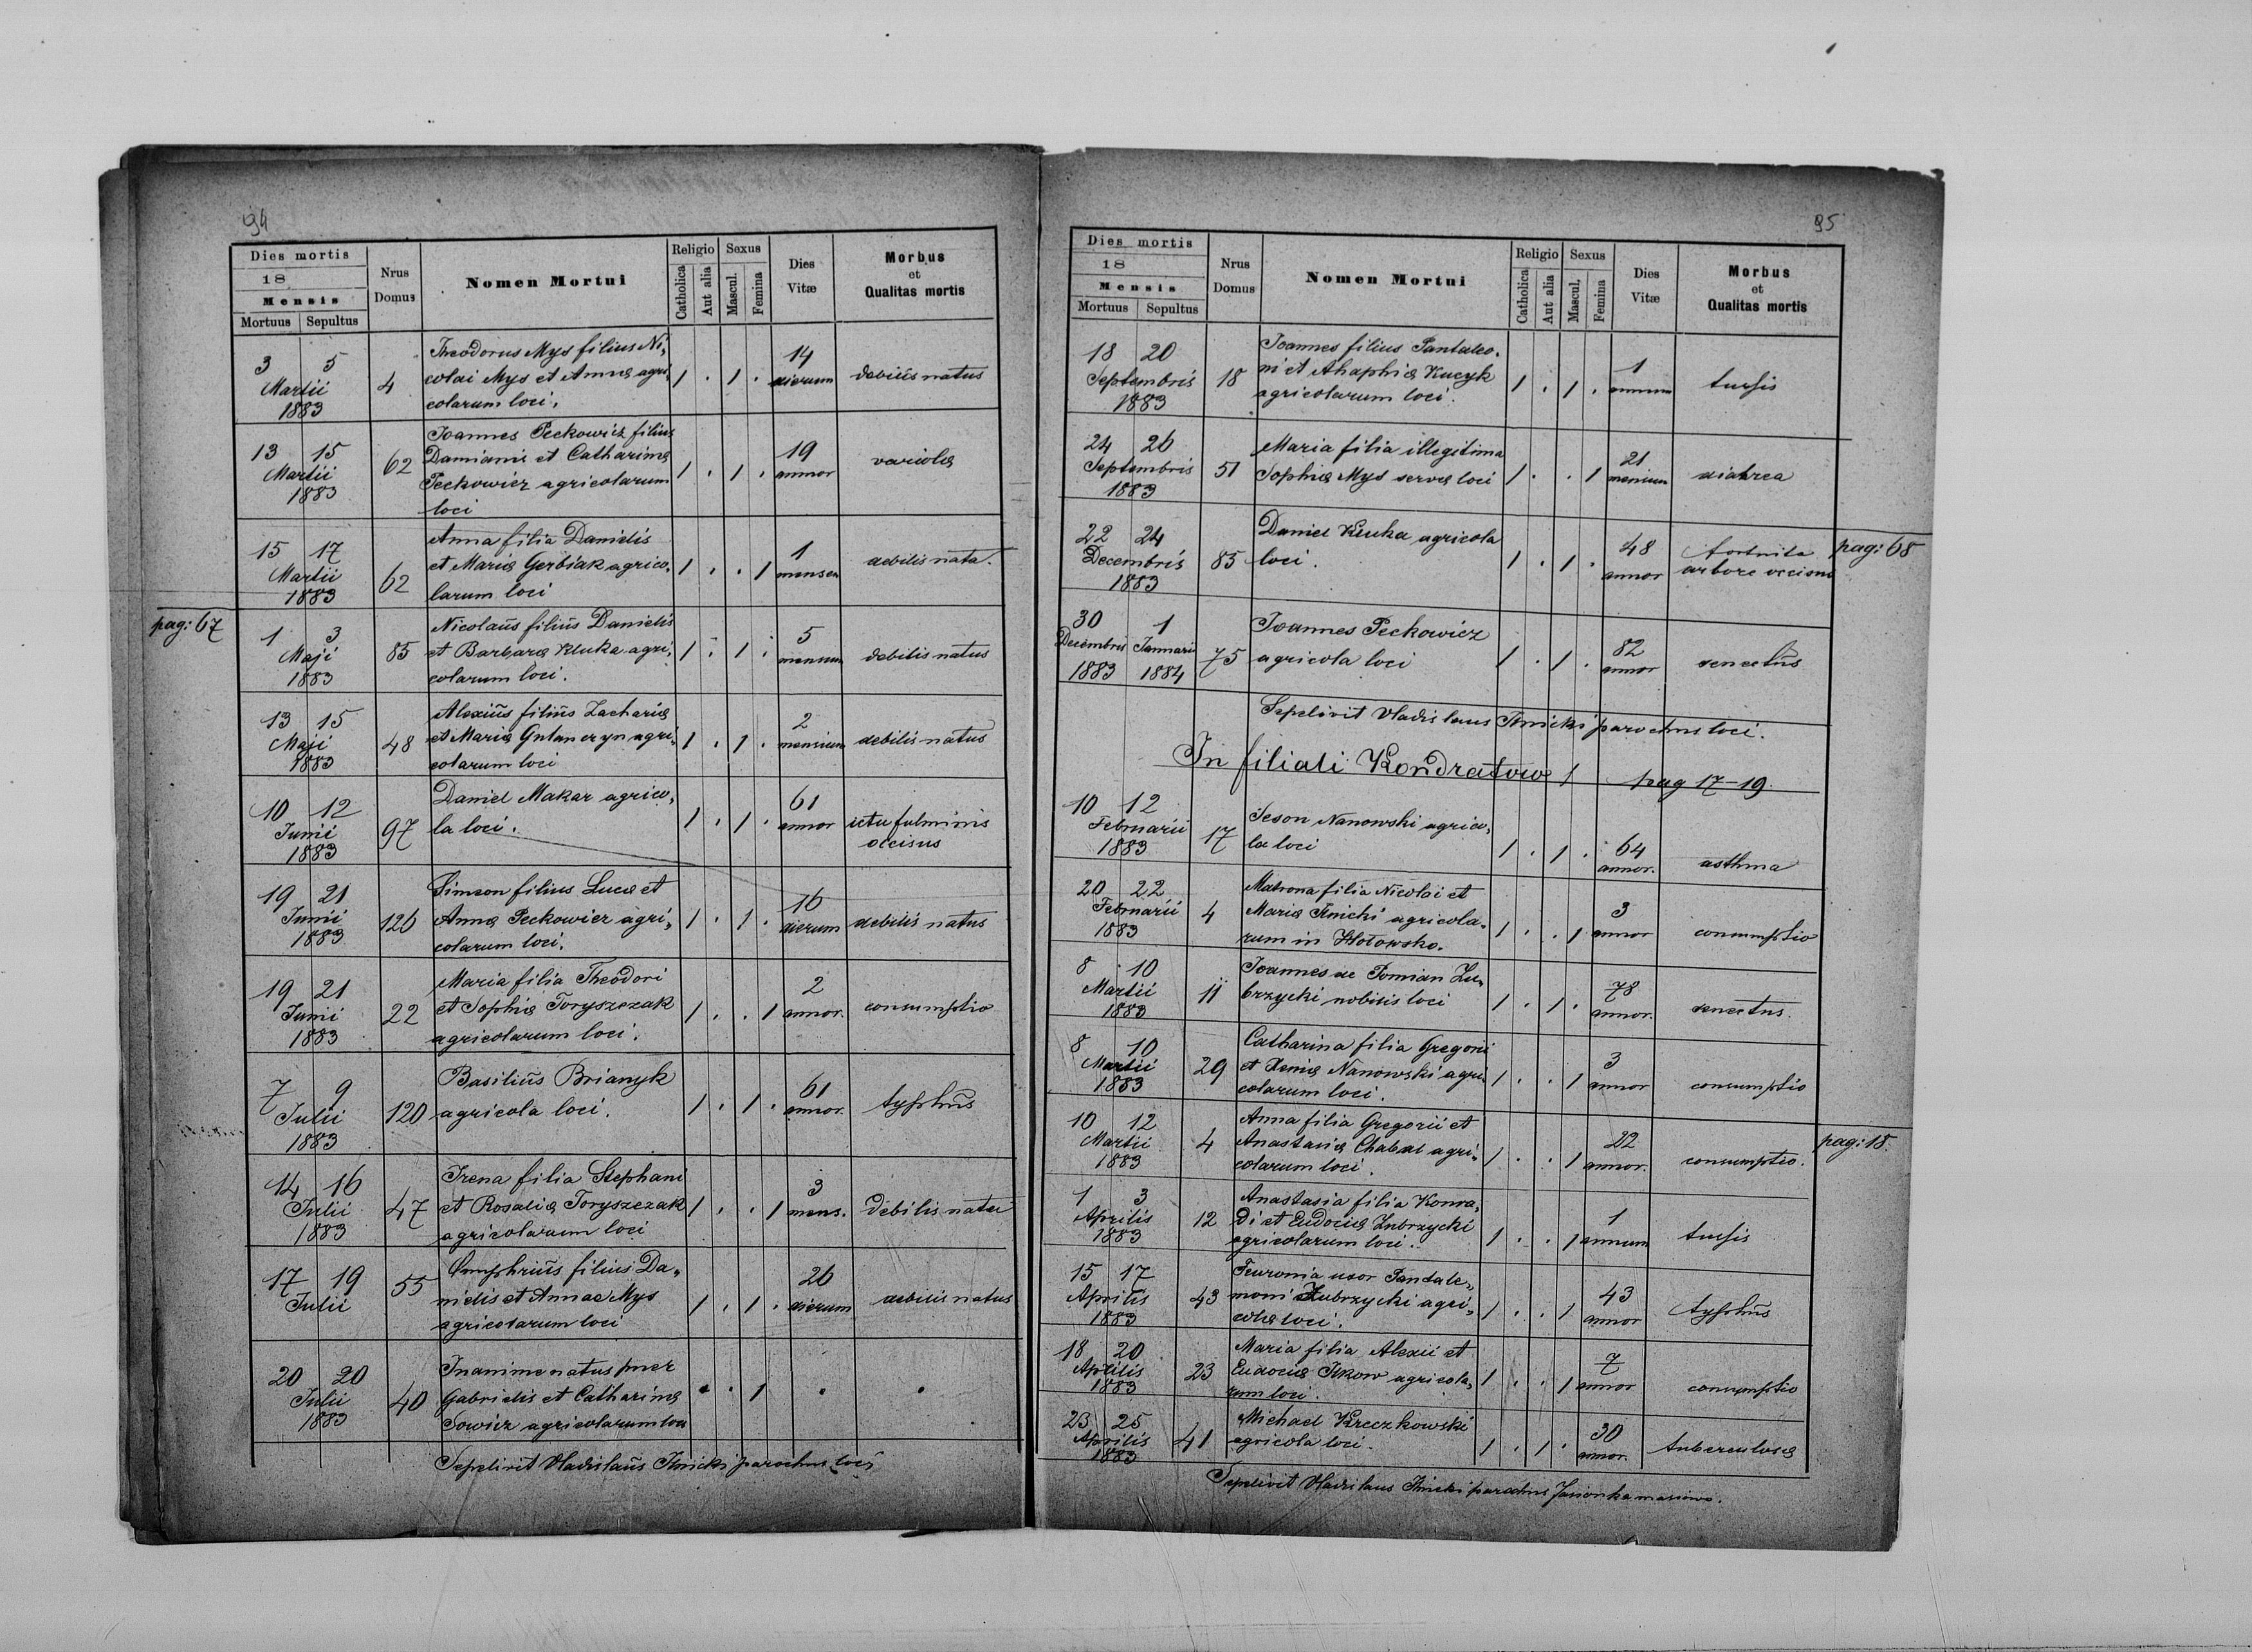 94
Dies mortis
18
Mensis
Mortuus Sepultus
Nrus Domus
Nomen Mortui
Religio
Catholica
Aut alia
Sexus
Mascul.
Femina
Dies Vitæ
Morbus
et
Qualitas mortis
3 5
Martii
1883
4
Theodorus Mys filius Ni„
colai Mys et Annæ agri„
colarum loci.
1 . 1 .
14
dierum
debilis natus
13 15
Martii
1883
62
Joannes Peckowicz filius
Damiani et Catharinæ
Peckowicz agricolarum
loci
1 . 1 .
19
annor
variola
15 17
Martii
1883
62
Anna filia Danielis
et Mariæ Gerbiak agrico„
larum loci
1 . . 1
1
mensen
debilis nata.
pag: 67
1 3
Maji
1883
85
Nicolaus filius Danielis
et Barbaræ Kluka agri„
colarum loci.
1 . 1 .
5
mensium
debilis natus
13 15
Maji
1883
48
Alexius filius Zachariæ
et Mariæ agri„
colarum loci
1 . 1 .
2
mensium
debilis natus
10 12
Junii
1883
97
Daniel Makar agrico„
la loci.
1 . 1 .
61
annor
ictu fulminis
occisus
19 21
Junii
1883
126
Simeon filius Lucæ et
Annæ Peckowicz agri„
colarum loci.
1 . 1 .
16
dierum
debilis natus
19 21
Junii
1883
22
Maria filia Theodori
et Sophiæ Toryszczak
agricolarum loci.
1 . . 1
2
annor.
consumptio
7 9
Julii
1883
120
Basilius Brianyk
agricola loci.
1 . 1 .
61
annor.
typhus
14 16
Julii
1883
47
Irena filia Stephani
et Rosaliæ Toryszczak
agricolarum loci
1 . . 1
3
mens.
debilis nata
17 19
Julii
55
Omphrius filius Da„
nielis et Annae Mys
agricolarum loci
1 . 1 .
26
dierum
debilis natus
20 20
Julii
1883
40
Inanime natus puer
Gabrielis et Catharinæ
Sowicz agricolarum loci
. . 1
.
.
Sepelivit Vladislaus Ilnicki parochus loci
95
Dies mortis
18
Mensis
Mortuus Sepultus
Nrus Domus
Nomen Mortui
Religio
Catholica
Aut alia
Sexus
Mascul.
Femina
Dies Vitæ
Morbus
et
Qualitas mortis
18 20
Septembris
1883
18
Joannes filius Pantaleo„
ni et Ahaphiæ Kucyk
agricolarum loci.
1 . 1 .
1
annum
tussis
24 26
Septembris
1883
51
Maria filia illegitima
Sophiæ Mys servæ loci
1 . . 1
21
mensium
diahrea
22 24
Decembris
1883
85
Daniel Kluka agricola
loci.
1 . 1 .
48
annor
fortuita
arbore occisus
pag: 68
30 1
Decembris Januarii
1883 1884
75
Joannes Peckowicz
agricola loci
1 . 1 .
82
annor
senectus
Sepelivit Vladislaus Ilnicki parochus loci.
In filiali Kondratow / pag 17-19.
10 12
Februarii
1883
17
Jeson Nanowski agrico„
la loci
1 . 1 .
64
annor.
asthma
20 22
Februarii
1883
4
Matrona filia Nicolai et
Mariæ Ilnicki agricola„
rum in Hołowsko.
1 . . 1
3
annor
consumptio
8 10
Martii
1883
11
Joannes de Pomian Zu„
brzycki nobilis loci
1 . 1 .
78
annor.
senectus.
8 10
Martii
1883
29
Catharina filia Gregorii
et Xeniæ Nanowski agri„
colarum loci.
1 . . 1
3
annor
consumptio
10 12
Martii
1883
4
Anna filia Gregorii et
Anastasiæ Chabal agri„
colarum loci.
1 . . 1
22
annor.
consumptio.
pag: 18.
1 3
Aprilis
1883
12
Anastasia filia Konra„
di et Eudociæ Zubrzycki
agricolarum loci.
1 . . 1
1
annum
tussis
15 17
Aprilis
1883
43
Fewronia uxor Pantale„
moni Zubrzycki agri„
colæ loci.
1 . . 1
43
annor
typhus
18 20
Aprilis
1883
23
Maria filia Alexii et
Eudociæ Ilkow agricola„
rum loci.
1 . . 1
7
annor
consumptio
23 25
Aprilis
1883
41
Michael Kreczkowski
agricola loci.
1 . 1 .
30
annor.
tuberculosa
Sepelivit Vladislaus Ilnicki parochus Jasionka masiowa.